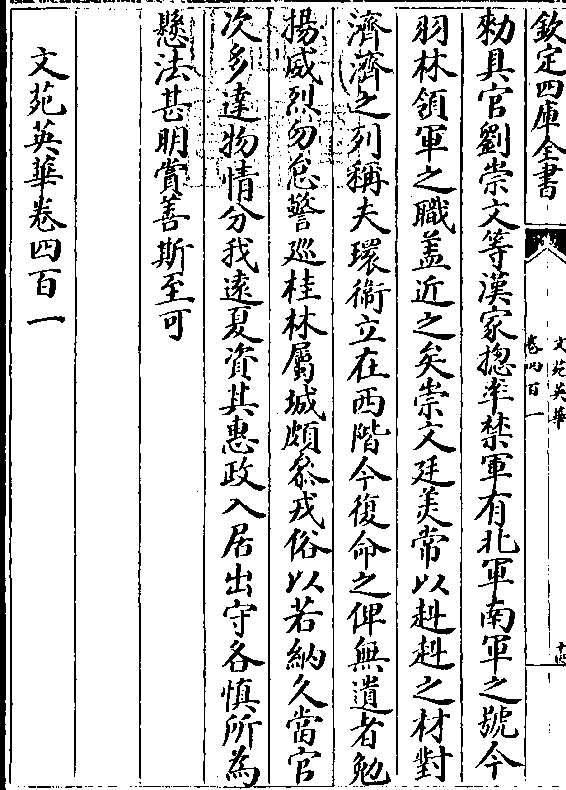 欽定四庫全書
文苑英華
卷四百一
十四
勑具官劉崇文等漢家揔率禁軍有北軍南軍之號今
羽林領軍之職盖近之矣崇文廷美常以赳赳之材對
濟濟之列稱夫環衛立在西階今復命之俾無遺者勉
揚威烈勿怠警巡桂林屬城頗叅戎俗以若納久當官
次多達物情分我逺夏資其惠政入居出守各慎所為
懸法甚明賞善斯至可
文苑英華卷四百一